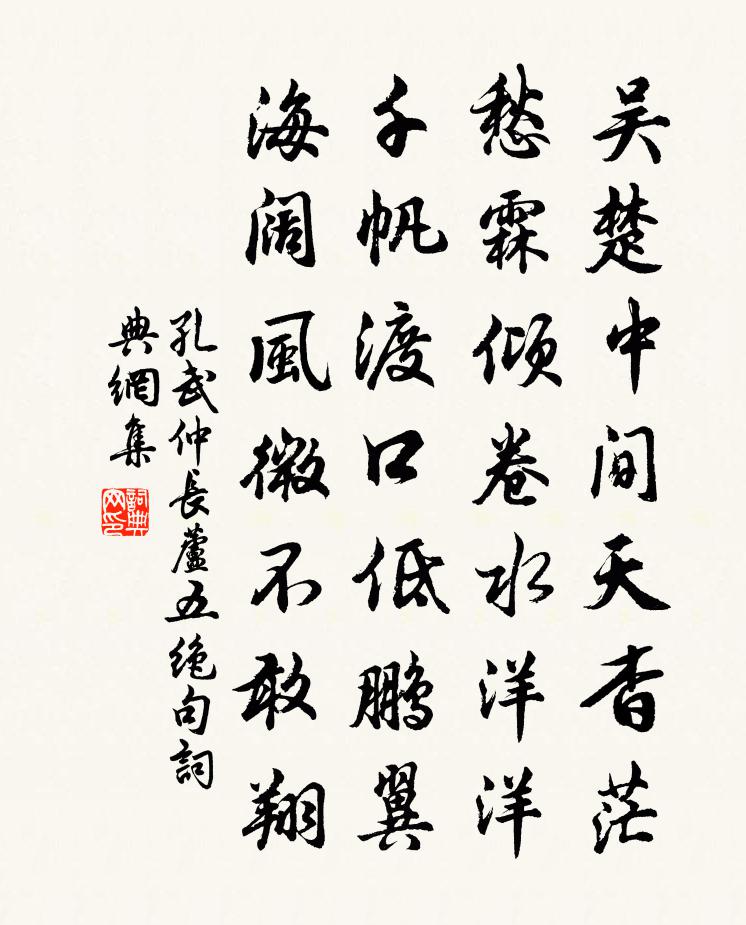 吴楚中间天杳茫
愁霖倾卷水洋洋
千帆渡口低鵬翼
海阔風微不敢翔
孔武仲長蘆五绝句詞
典網集
詞典网印